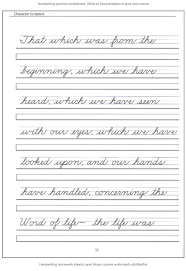 Handwriting practice worksheets: 1000s of free printables in print and cursive
Character Scripture
That which was from the
beginning, which we have
heard, which we have seen
with our eyes, which we have
looked upon, and our hands
have handled, concerning the
Word of life— the life was